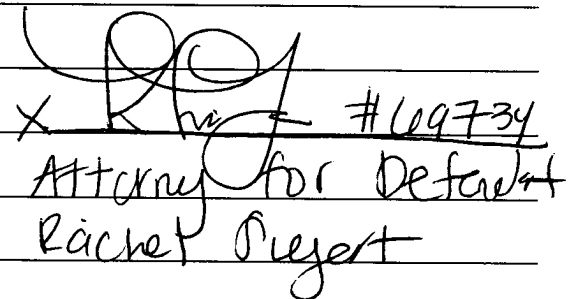 X #69734
Attorney for Defendant
Rachel